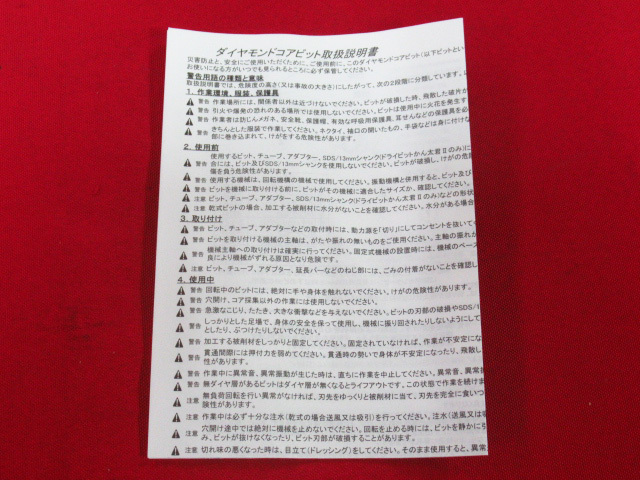 ダイヤモンドコアビット取扱説明書
災害防止と、安全にご使用いただくために、ご使用前に、このダイヤモンドコアビット(以下ビットとい
お使いになる方がいつでも見られるところに必ず保管してください。
警告用語の種類と意味
取扱説明書では、危険度の高さ(又は事故の大きさ)にしたがって、次の2段階に分類しています。
1. 作業環境、服装、保護具
警告 作業場所には、関係者以外は近づけないでください。ビットが破損した時、飛散した破片が
警告 引火や爆発の恐れのある場所では使用しないでください。ビットは使用中に火花を発生す
警告 作業者は防じんメガネ、安全靴、保護帽、有効な呼吸用保護具、耳せんなどの保護具を必
警告 きちんとした服装で作業してください。ネクタイ、袖口の開いたもの、手袋などは身に付けな
部に巻き込まれて、けがをする危険性があります。
2. 使用前
使用するビット、チューブ、アダプター、SDS/13mmシャンク(ドライビットかん太君Ⅱのみ)に
警告 合には、ビット及びSDS/13mmシャンクを使用しないでください。ビットが破損し、けがの危険
傷を負う危険性があります。
警告 使用する機械は、回転機構の機械で使用してください。振動機構と併用すると、ビット及び
警告 ビットを機械に取り付ける前に、ビットがその機械に適合したサイズか、確認してください。
注意 ビット、チューブ、アダプター、SDS/13mmシャンク(ドライビットかん太君Ⅱのみ)などの形状
注意 乾式ビットの場合、加工する被削材に水分がないことを確認してください。水分がある場合
3. 取り付け
警告 ビット、チューブ、アダプターなどの取付時には、動力源を「切り」にしてコンセントを抜いて
警告 ビットを取り付ける機械の主軸は、がたや振れの無いものをご使用ください。主軸の振れが
警告 機械主軸への取り付けは確実に行ってください。固定式機械の設置時には、機械のベース
良により機械がずれる原因となり危険です。
注意 ビット、チューブ、アダプター、延長バーなどのねじ部には、ごみの付着がないことを確認し
4. 使用中
警告 回転中のビットには、絶対に手や身体を触れないでください。けがの危険性があります。
警告 穴開け、コア採集以外の作業には使用しないでください。
警告 急激なこじり、たたき、大きな衝撃などを与えないでください。ビットの刃部の破損やSDS/1
警告 しっかりとした足場で、身体の安全を保って使用し、機械に振り回されたりしないようにして
としたり、ぶつけたりしないでください。
警告 加工する被削材をしっかりと固定してください。固定されていなければ、作業が不安定にな
警告 貫通間際には押付力を弱めてください。貫通時の勢いで身体が不安定になったり、飛散し
性があります。
警告 作業中に異常音、異常振動が生じた時は、直ちに作業を中止してください。異常音、異常振
警告 無ダイヤ層があるビットはダイヤ層が無くなるとライフアウトです。この状態で作業を続けま
注意 無負荷回転を行い異常がなければ、刃先をゆっくりと被削材に当て、刃先を完全に食いつ
険性があります。
注意 作業中は必ず十分な注水(乾式の場合送風又は吸引)を行ってください。注水(送風又は吸
注意 穴開け途中では絶対に機械を止めないでください。回転を止める時には、ビットを静かに引
み、ビットが抜けなくなったり、ビット刃部が破損することがあります。
注意 切れ味の悪くなった時は、目立て(ドレッシング)をしてください。そのまま使用すると、異常